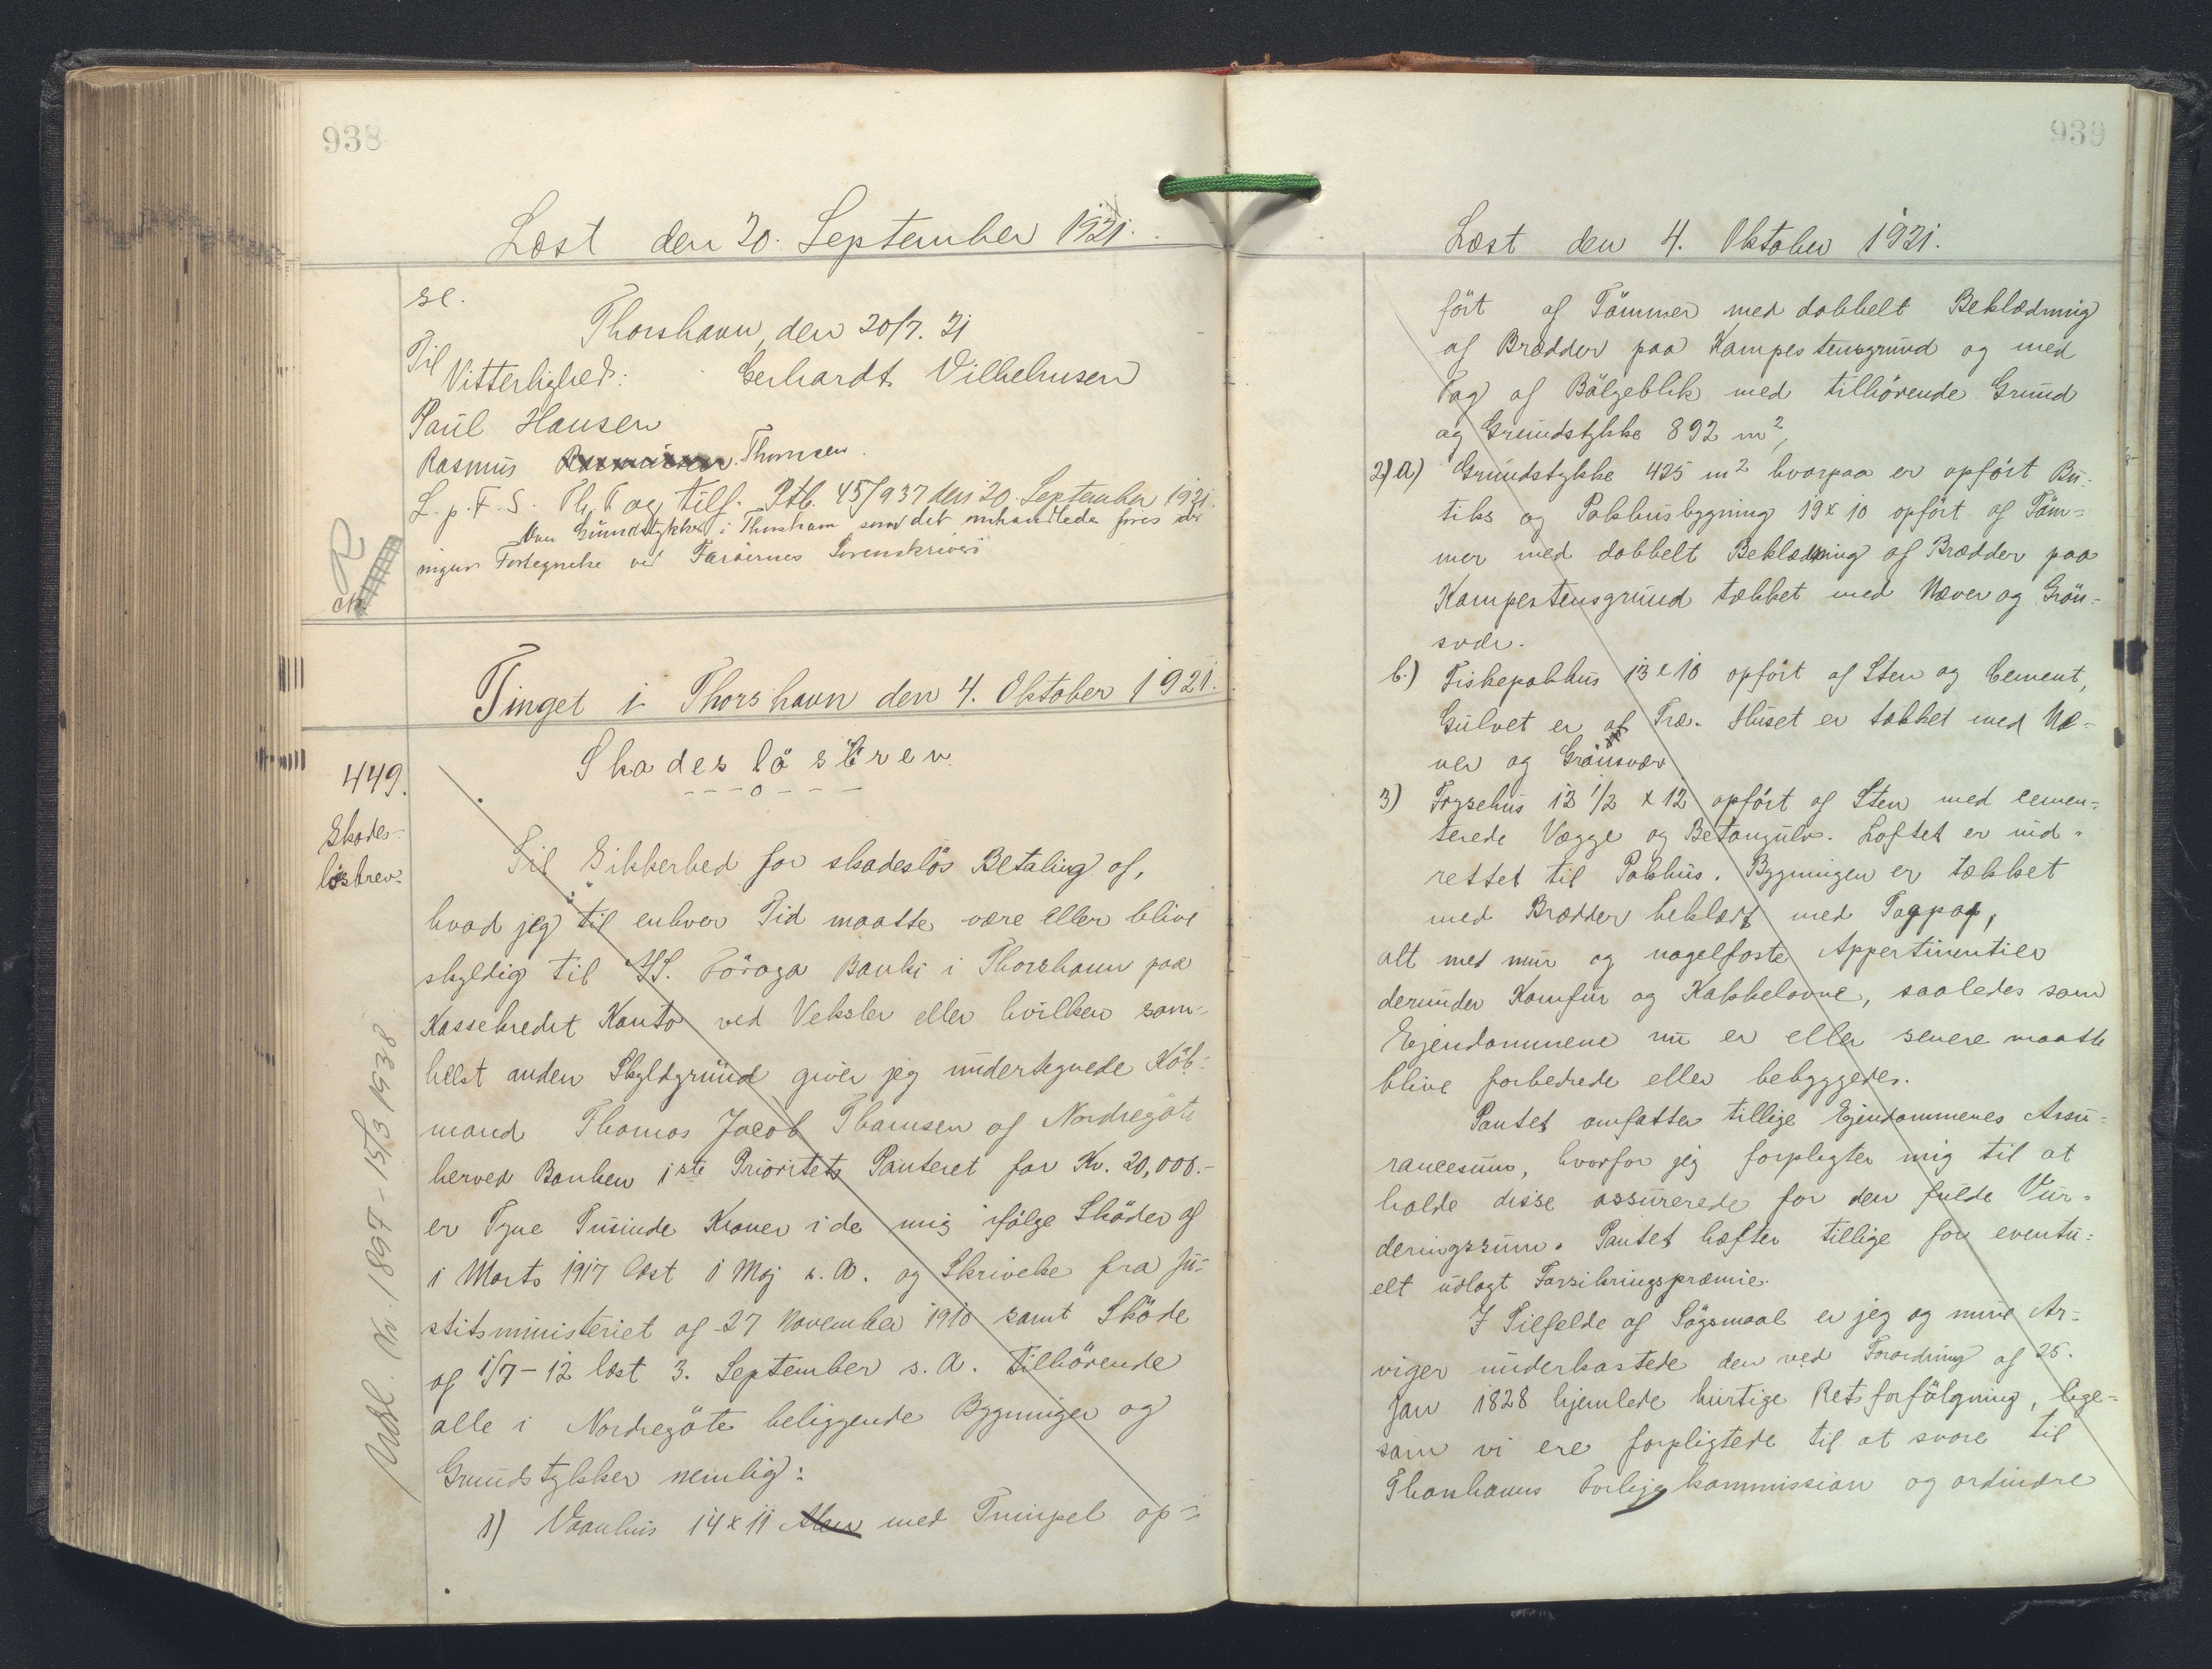 938
Læst den 20. September 1921.
se.
Thorshavn, den 20/7. 21
Til
Vitterlighed: Gerhardt Vilhelmsen
Paul Hansen
Rasmus Thomsen.
L. p. F. S. Th. F og tilf. Ptb. 45/937 den 20. September 1921.
Over Grundstykker i Thorshavn som det omhandlede føres der
ingen Fortegnelse ved Færøernes Sorenskriveri
R
Tinget i Thorshavn den 4. Oktober 1921.
449.
Skades-
løsbrev.
Skadesløsbrev.
---o---
Til Sikkerhed for skadesløs Betaling af,
hvad jeg til enhver Tid maatte være eller blive
skyldig til A/S. Föroya Banki i Thorshavn paa
Kassekredit Konto ved Veksler eller hvilken som-
helst anden Skyldgrund giver jeg undertegnede Køb-
mand Thomas Jacob Thomsen af Nordregöte
herved Banken 1ste Prioritets Panteret for Kr. 20,000.-
er Tyve Tusinde Kroner i de mig ifølge Skøder af
1 Marts 1917 læst 1 Maj s. A. og Skrivelse fra Ju-
stitsministeriet af 27 November 1910 samt Skøde
af 1/7-12 læst 3. September s. A. tilhørende
alle i Nordregöte beliggende Bygninger og
Grundstykker nemlig:
1) Vaanhus 14 x 11 Alen med Tminpel op-
Udsl. Nr. 1897-15/3 1938
939
Læst den 4. Oktober 1921.
ført af Tømmer med dobbelt Beklædning
af Brædder paa Kampestensgrund og med
Tag af Bølgeblik med tilhørende Grund
og Grundstykke 892 m²,
2) a) Grundstykke 425 m² hvorpaa er opført Bu-
tiks og Pakhusbygning 19 x 10 opført af Tøm-
mer med dobbelt Beklædning af Brædder paa
Kampestensgrund tækket med Næver og Grøn-
svær.
b.) Fiskepakhus 13 x 10 opført af Sten og Cement,
Gulvet er af Træ. Huset er tækket med Næ-
ver og Grønsvær
3) Frysehus 13 1/2 x 12 opført af Sten med cemen-
terede Vægge og Betongulv. Loftet er ind-
rettet til Pakhus. Bygningen er tækket
med Brædder beklædt med Tagpap,
alt med mur og nagelfaste Appertinentier
derunder Komfur og Kakkelovne, saaledes som
Ejendommene nu er eller senere maatte
blive forbedrede eller bebyggedes.
Pantet omfatter tillige Ejendommenes Assu-
rancesum, hvorfor jeg forpligter mig til at
holde disse assurerede for den fulde Vur-
deringssum. Pantet hæfter tillige for eventu-
elt udlagt Forsikringspræmie.
I Tilfælde af Søgsmaal er jeg og mine Ar-
viger underkastede den ved Forordning af 25.
Jan 1828 hjemlede hurtige Retsforfølgning, lige-
som vi ere forpligtede til at svare til
Thorshavns Forligskommission og ordinære